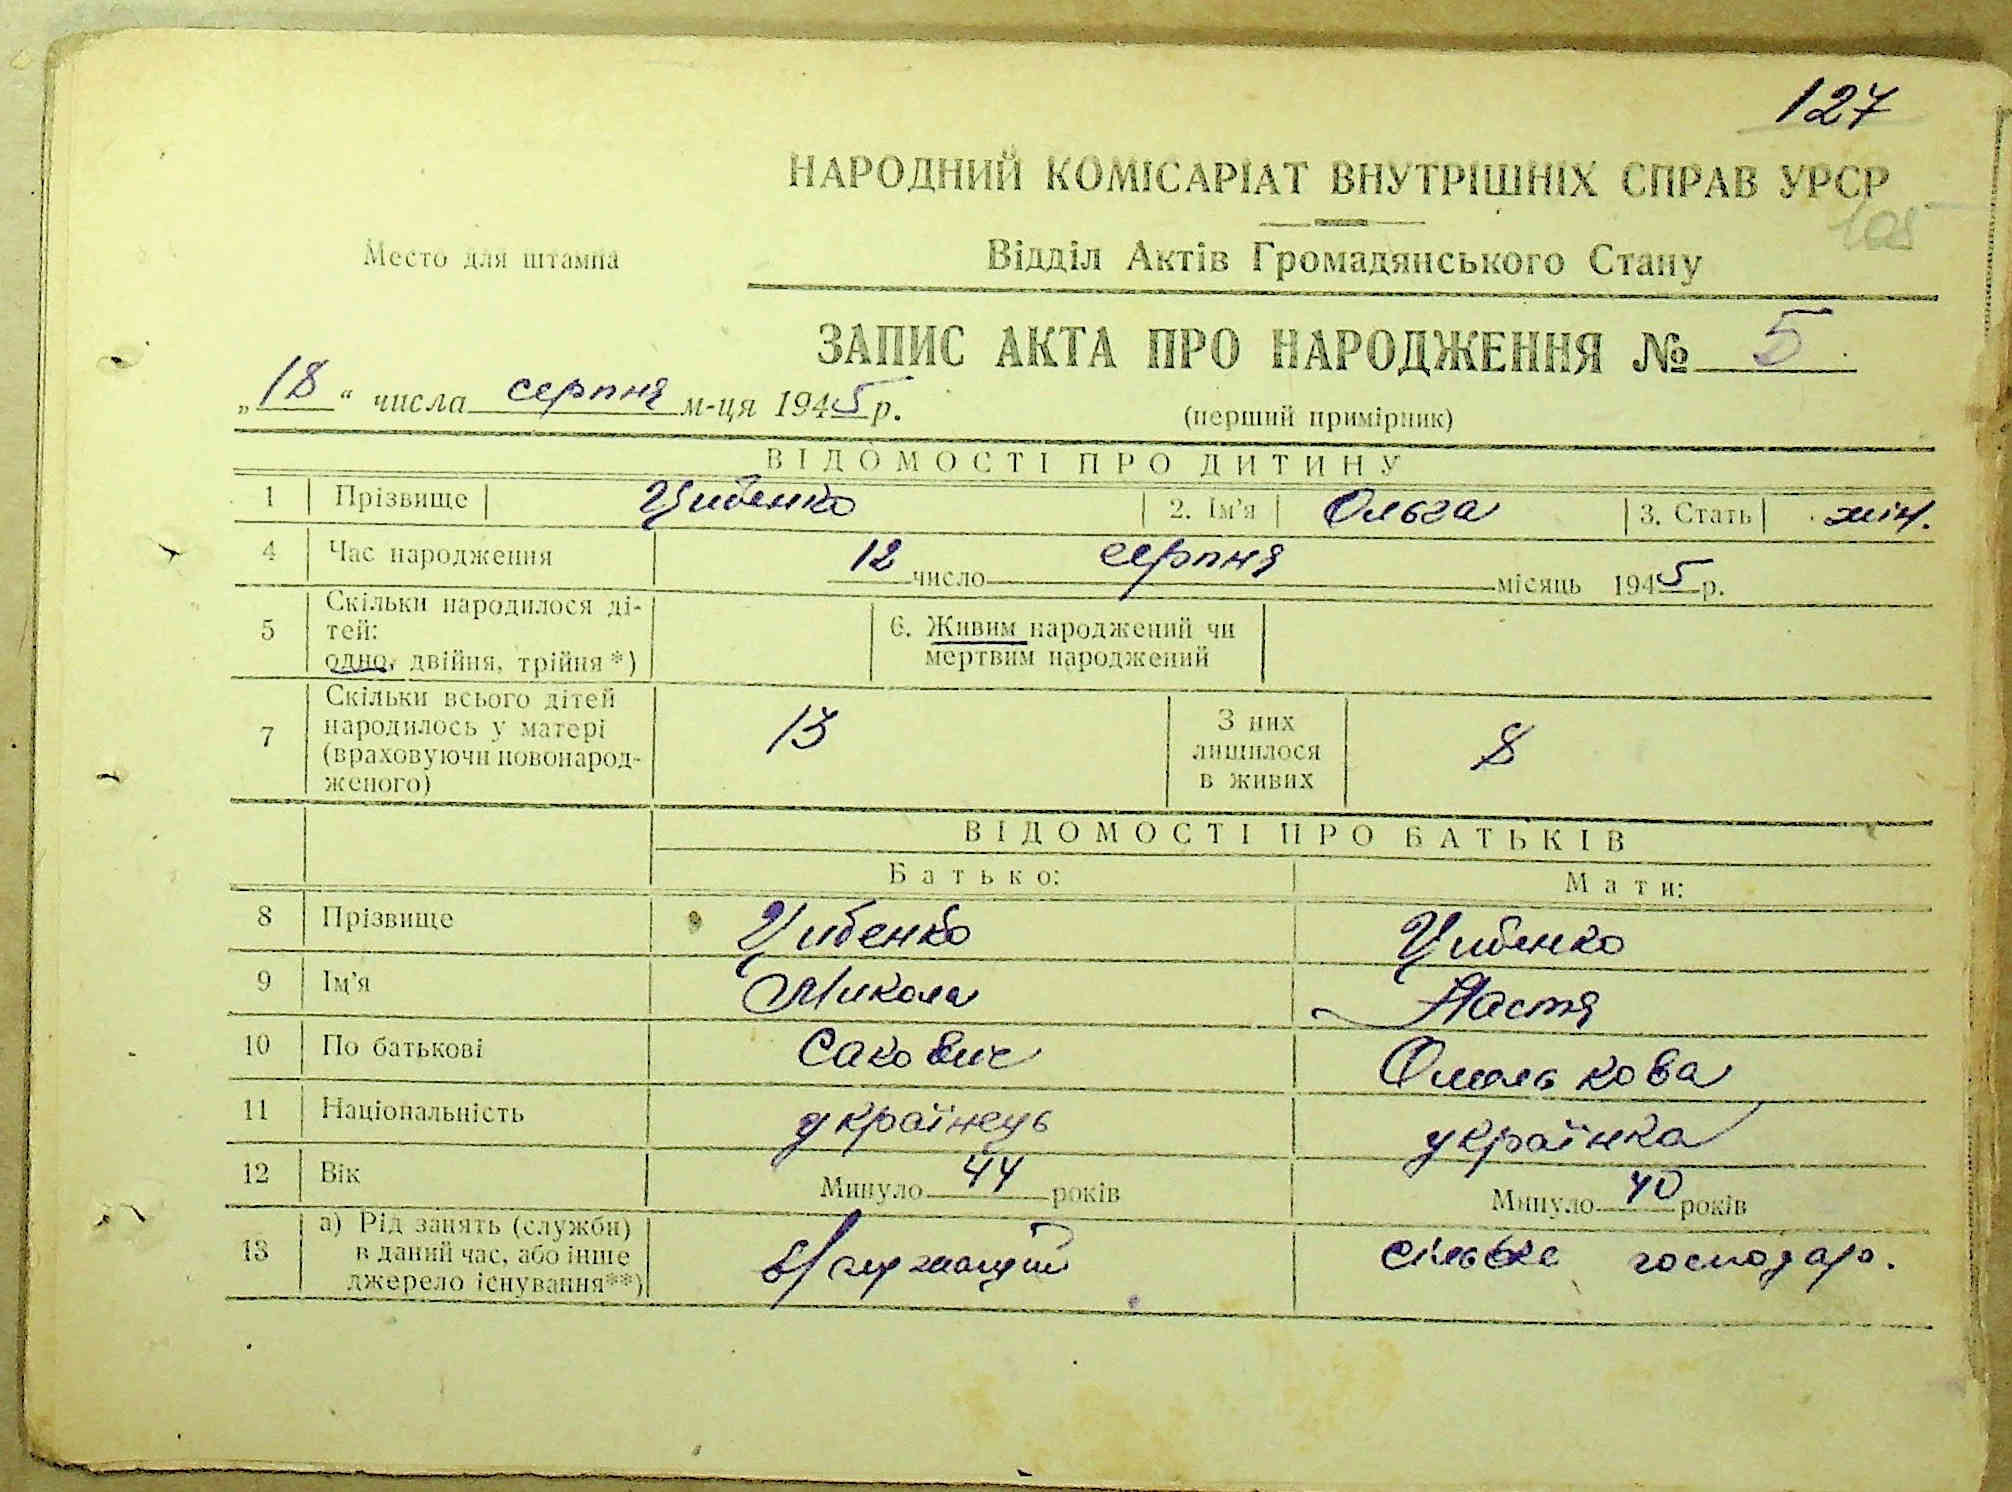 127
НАРОДНИЙ КОМІСАРІАТ ВНУТРІШНІХ СПРАВ УРСР
105
Место для штампа
Відділ Актів Громадянського Стану
ЗАПИС АКТА ПРО НАРОДЖЕННЯ № 5
„18“ числа серпня м-ця 1945 р.
(перший примірник)
ВІДОМОСТІ ПРО ДИТИНУ
1 Прізвище Цибенко 2. Ім'я Ольга 3. Стать жін.
4 Час народження 12 число серпня місяць 1945 р.
5 Скільки народилося ді-
тей:
одно, двійня, трійня*)
6. Живим народжений чи
мертвим народжений
7 Скільки всього дітей
народилось у матері
(враховуючи новонарод-
женого)
13
З них
лишилося
в живих
8
ВІДОМОСТІ ПРО БАТЬКІВ
Батько: Мати:
8 Прізвище Цибенко Цибенко
9 Ім'я Микола Настя
10 По батькові Сакович Омелькова
11 Національність українець українка
12 Вік Минуло 44 років Минуло 40 років
13 а) Рід занять (служби)
в даний час, або інше
джерело існування**)
в/служащий
сільске господар.